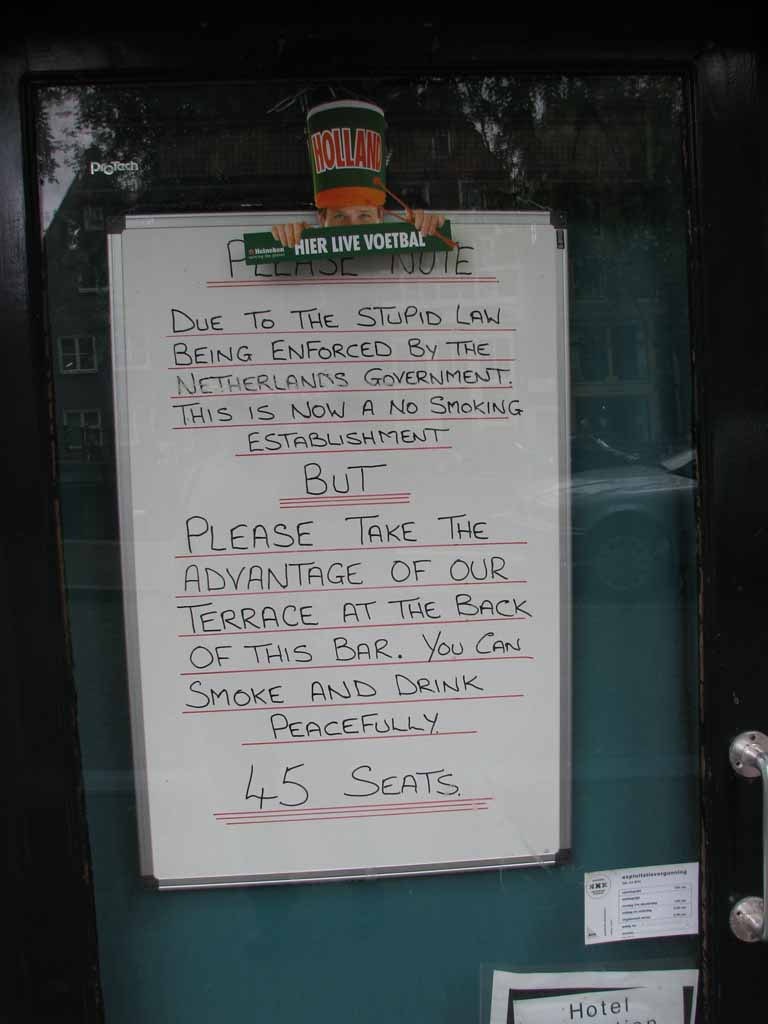 ProTech
HOLLAND
Heineken
HIER LIVE VOETBAL
PLEASE NOTE
DUE TO THE STUPID LAW
BEING ENFORCED BY THE
NETHERLANDS GOVERNMENT.
THIS IS NOW A NO SMOKING
ESTABLISHMENT
BUT
PLEASE TAKE THE
ADVANTAGE OF OUR
TERRACE AT THE BACK
OF THIS BAR. YOU CAN
SMOKE AND DRINK
PEACEFULLY.
45 SEATS.
exploitatievergunning
Hotel